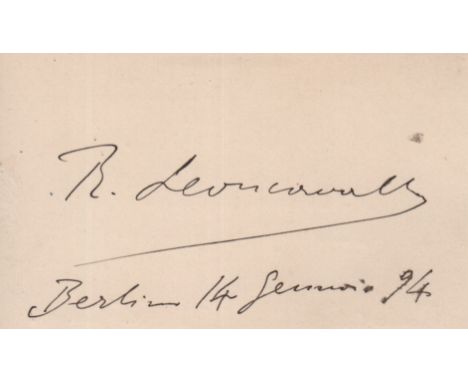 R. Leoncavallo
Berlino 14 Gennaio 94